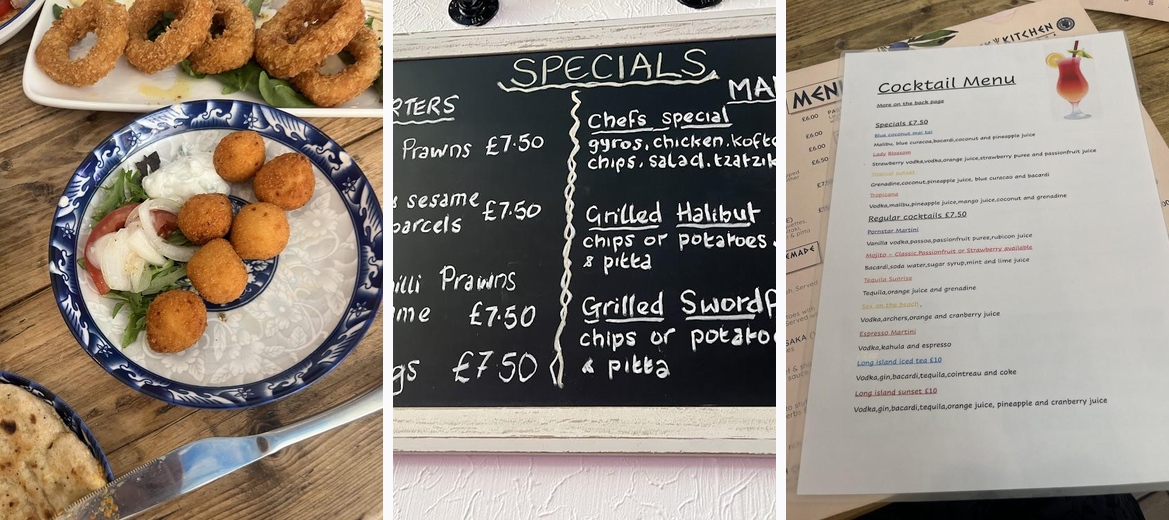 SPECIALS
RTERS
Prawns £7.50
sesame
parcels £7.50
illi Prawns
me £7.50
gs £7.50
MA
Chefs Special
gyros, chicken, kofte
chips, salad, tzatzik
Grilled Halibut
chips or potatoes
& pitta
Grilled Swordf
chips or potatoe
& pitta
KITCHEN
MEN
£6.00
£6.00
£6.00
£6.50
EMADE
SAKA
Cocktail Menu
More on the back page
Specials £7.50
Blue coconut mai tai
Malibu, blue curacoa,bacardi,coconut and pineapple juice
Lady Blossom
Strawberry vodka,vodka,orange juice,strawberry puree and passionfruit juice
Grenadine,coconut,pineapple juice, blue curacao and bacardi
Tropicana
Vodka,malibu,pineapple juice,mango juice,coconut and grenadine
Regular cocktails £7.50
Pornstar Martini
Vanilla vodka,passoa,passionfruit puree,rubicon juice
Mojito – Classic,Passionfruit or Strawberry available
Bacardi,soda water,sugar syrup,mint and lime juice
Tequila Sunrise
Tequila,orange juice and grenadine
Sex on the beach
Vodka,archers,orange and cranberry juice
Espresso Martini
Vodka,kahula and espresso
Long island iced tea £10
Vodka,gin,bacardi,tequila,cointreau and coke
Long island sunset £10
Vodka,gin,bacardi,tequila,orange juice, pineapple and cranberry juice